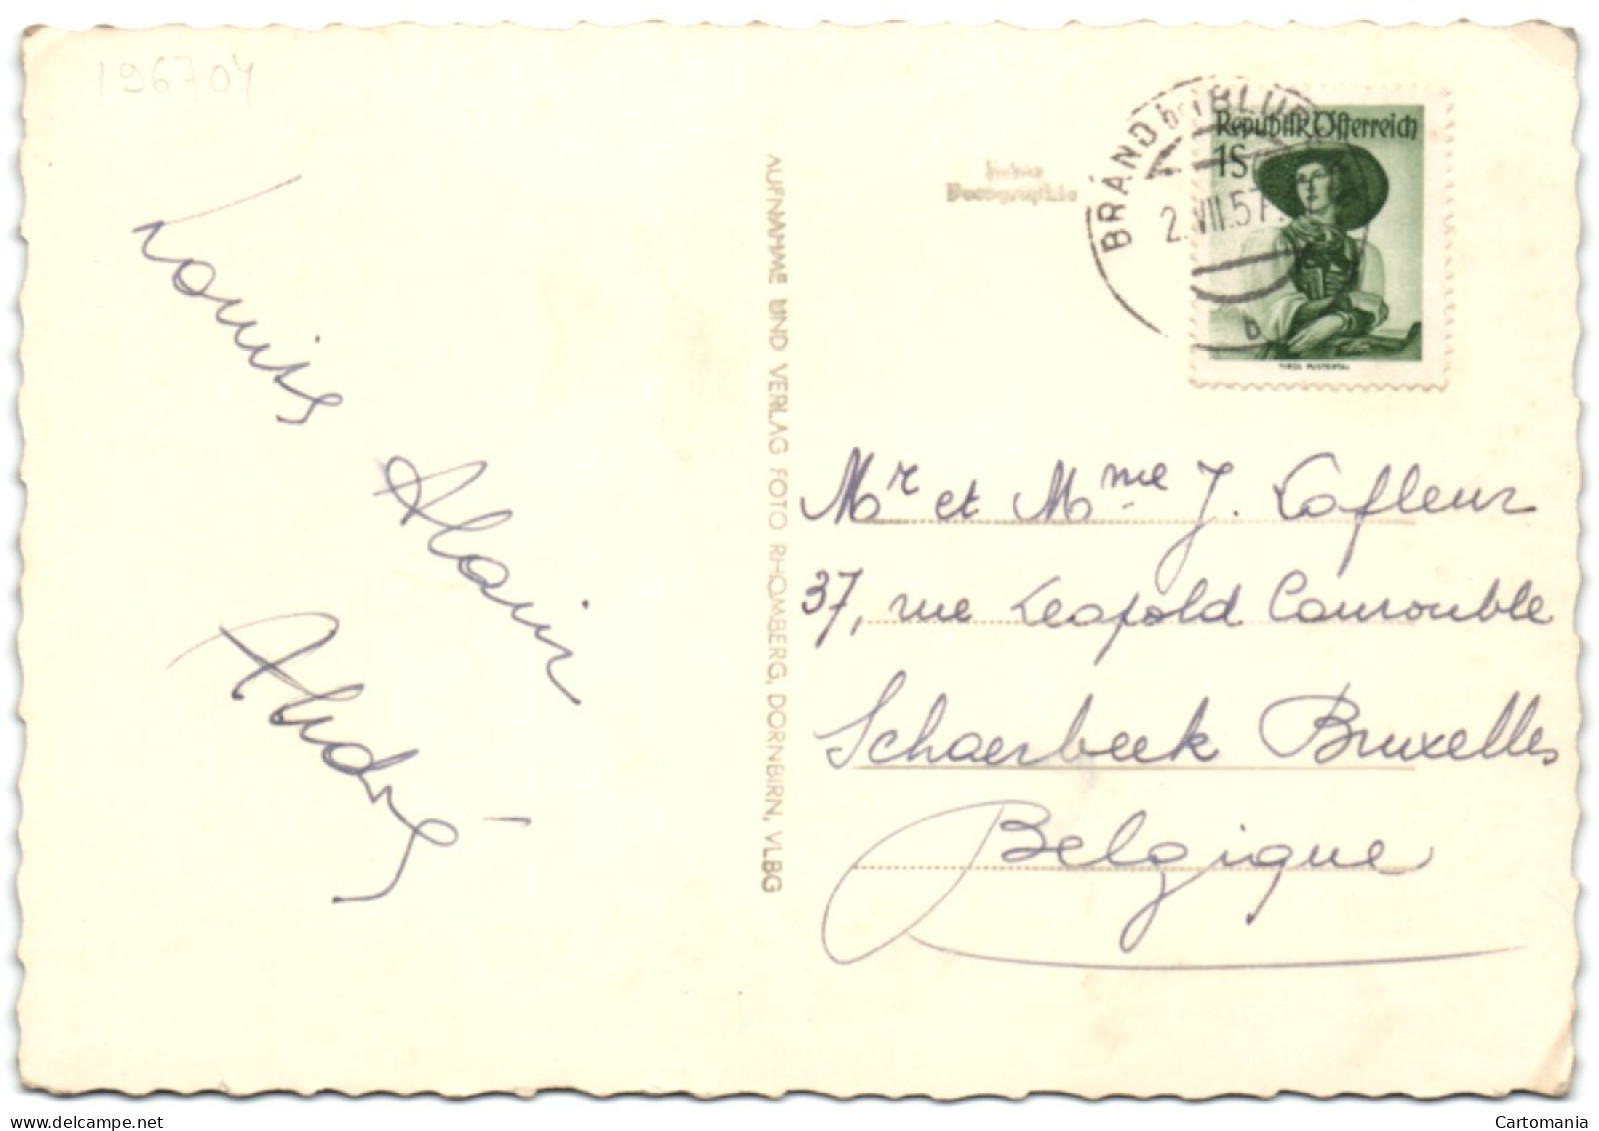 196704
Louis
Alain
André
AUFNAHME UND VERLAG FOTO RHOMBERG, DORNBIRN, VLBG
Echte
Photographie
BRAND bei BLUD
2.VII.57
b
Republik Österreich
1S
TIROL PUSTERTAL
Mr et Mme J. Lafleur
37, rue Leopold Courouble
Schaerbeek Bruxelles
Belgique
Cartomania